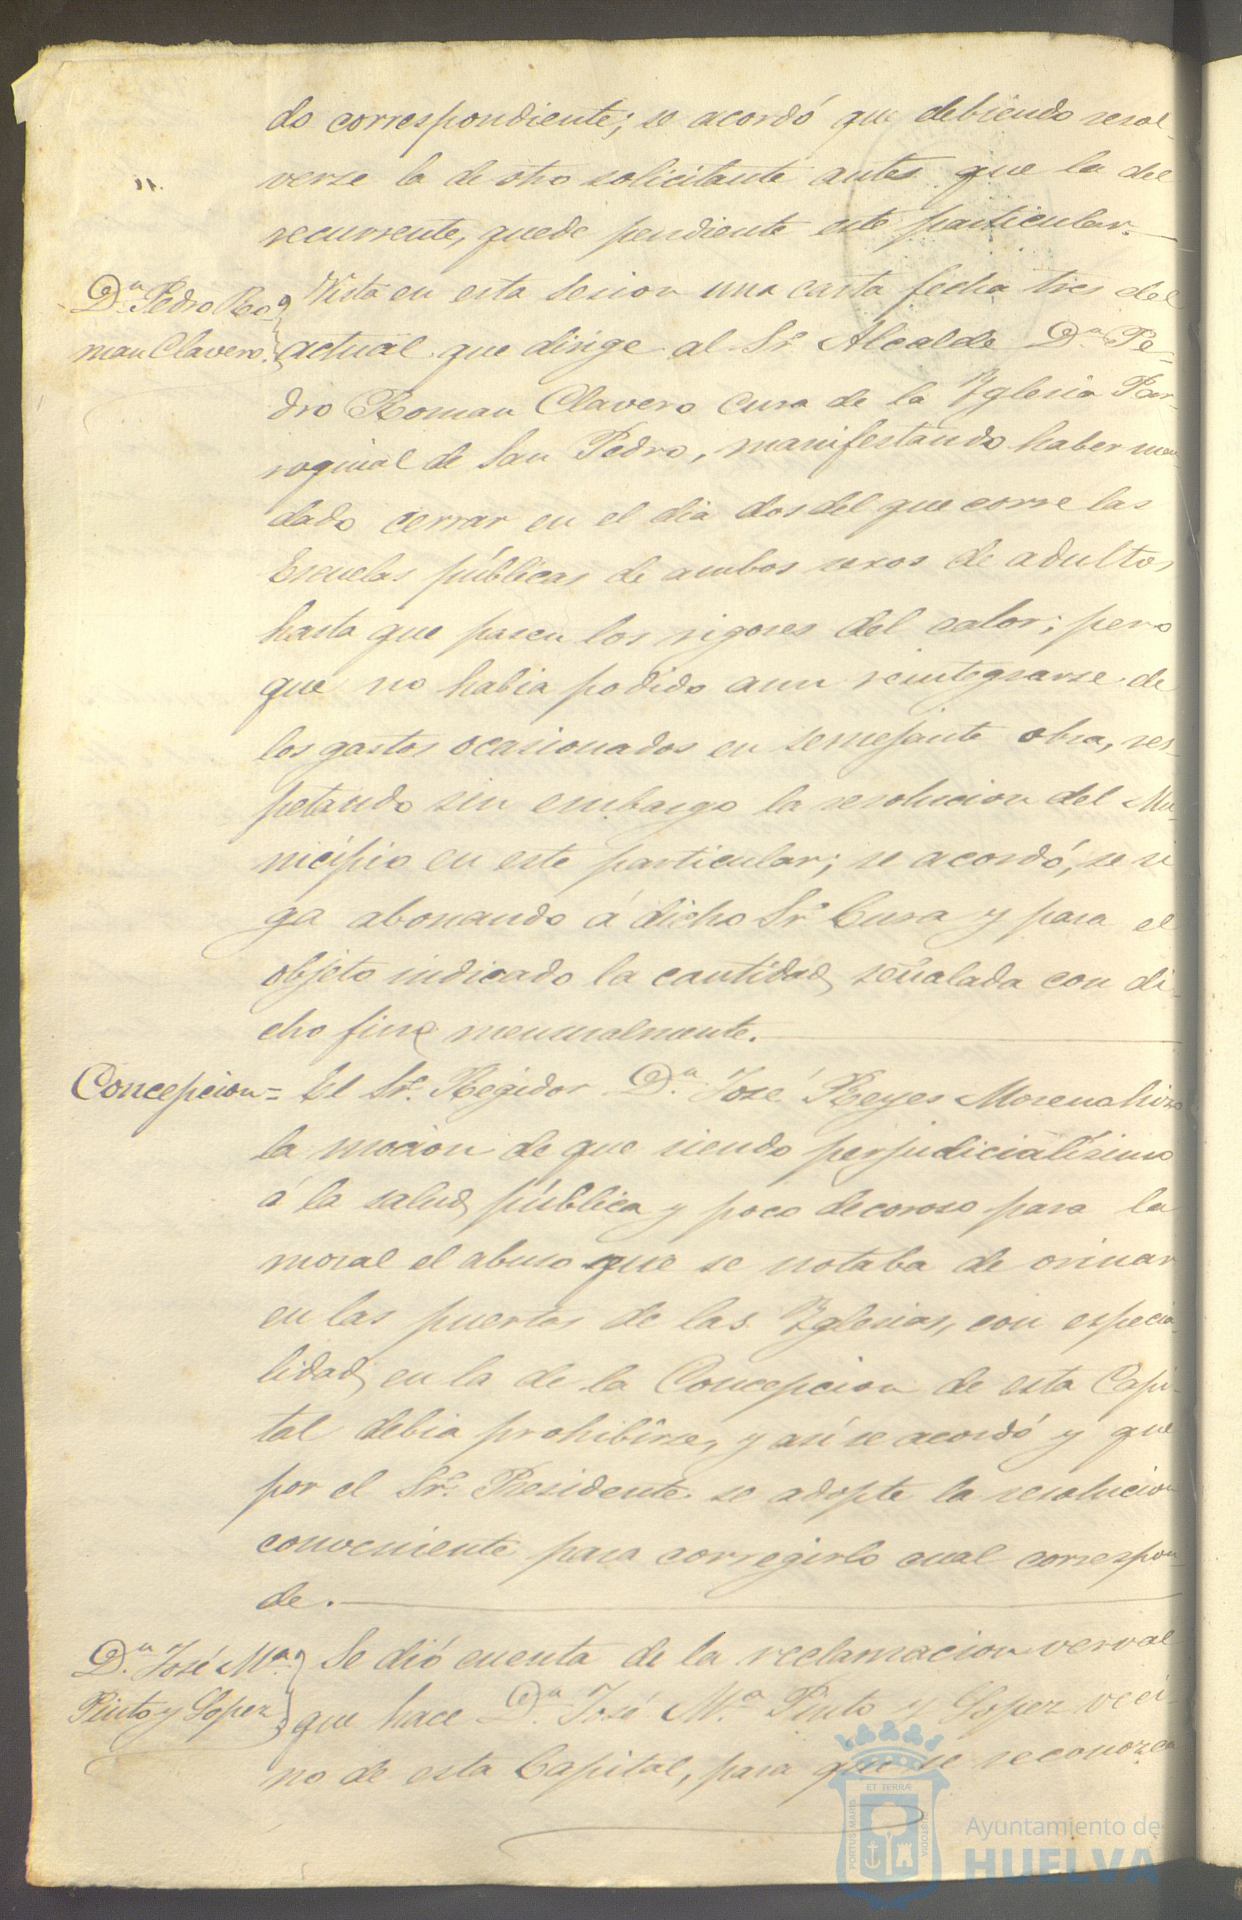 do correspondiente; se acordó que debiendo resol-
verse la de otro solicitante antes que la del
recurrente, quede pendiente este particular.
Dn. Pedro Ro-
man Clavero.
Vista en esta sesion una carta fecha tres del
actual que dirige al Sr. Alcalde Dn. Pe-
dro Roman Clavero Cura de la Yglesia Par-
roquial de San Pedro, manifestando haber man-
dado cerrar en el dia dos del que corre las
Escuelas públicas de ambos sexos de adultos
hasta que pasen los rigores del calor; pero
que no habia podido aun reintegrarse de
los gastos ocasionados en semejante obra, res-
petando sin embargo la resolucion del Mu-
nicipio en este particular; se acordó, se si
ga abonando á dicho Sr. Cura y para el
objeto indicado la cantidad señalada con di-
cho fin mensualmente.
Concepcion =
El Sr. Regidor Dn. José Reyes Moreno hizo
la mocion de que siendo perjudicialísimo
á la salud pública y poco decoroso para la
moral el abuso que se notaba de orinar
en las puertas de las Yglesias, con especia-
lidad en la de la Concepcion de esta Capi-
tal debia prohibirse, y así se acordó y que
por el Sr. Presidente se adopte la resolucion
conveniente para corregirlo cual correspon-
de.
Dn. José Ma.
Pinto y Lopez
Se dió cuenta de la reclamacion verval
que hace Dn. José Ma. Pinto y Lopez veci-
no de esta Capital, para que se reconozca
PORTUS MARIS
ET TERRÆ
CUSTODIA
Ayuntamiento de
HUELVA